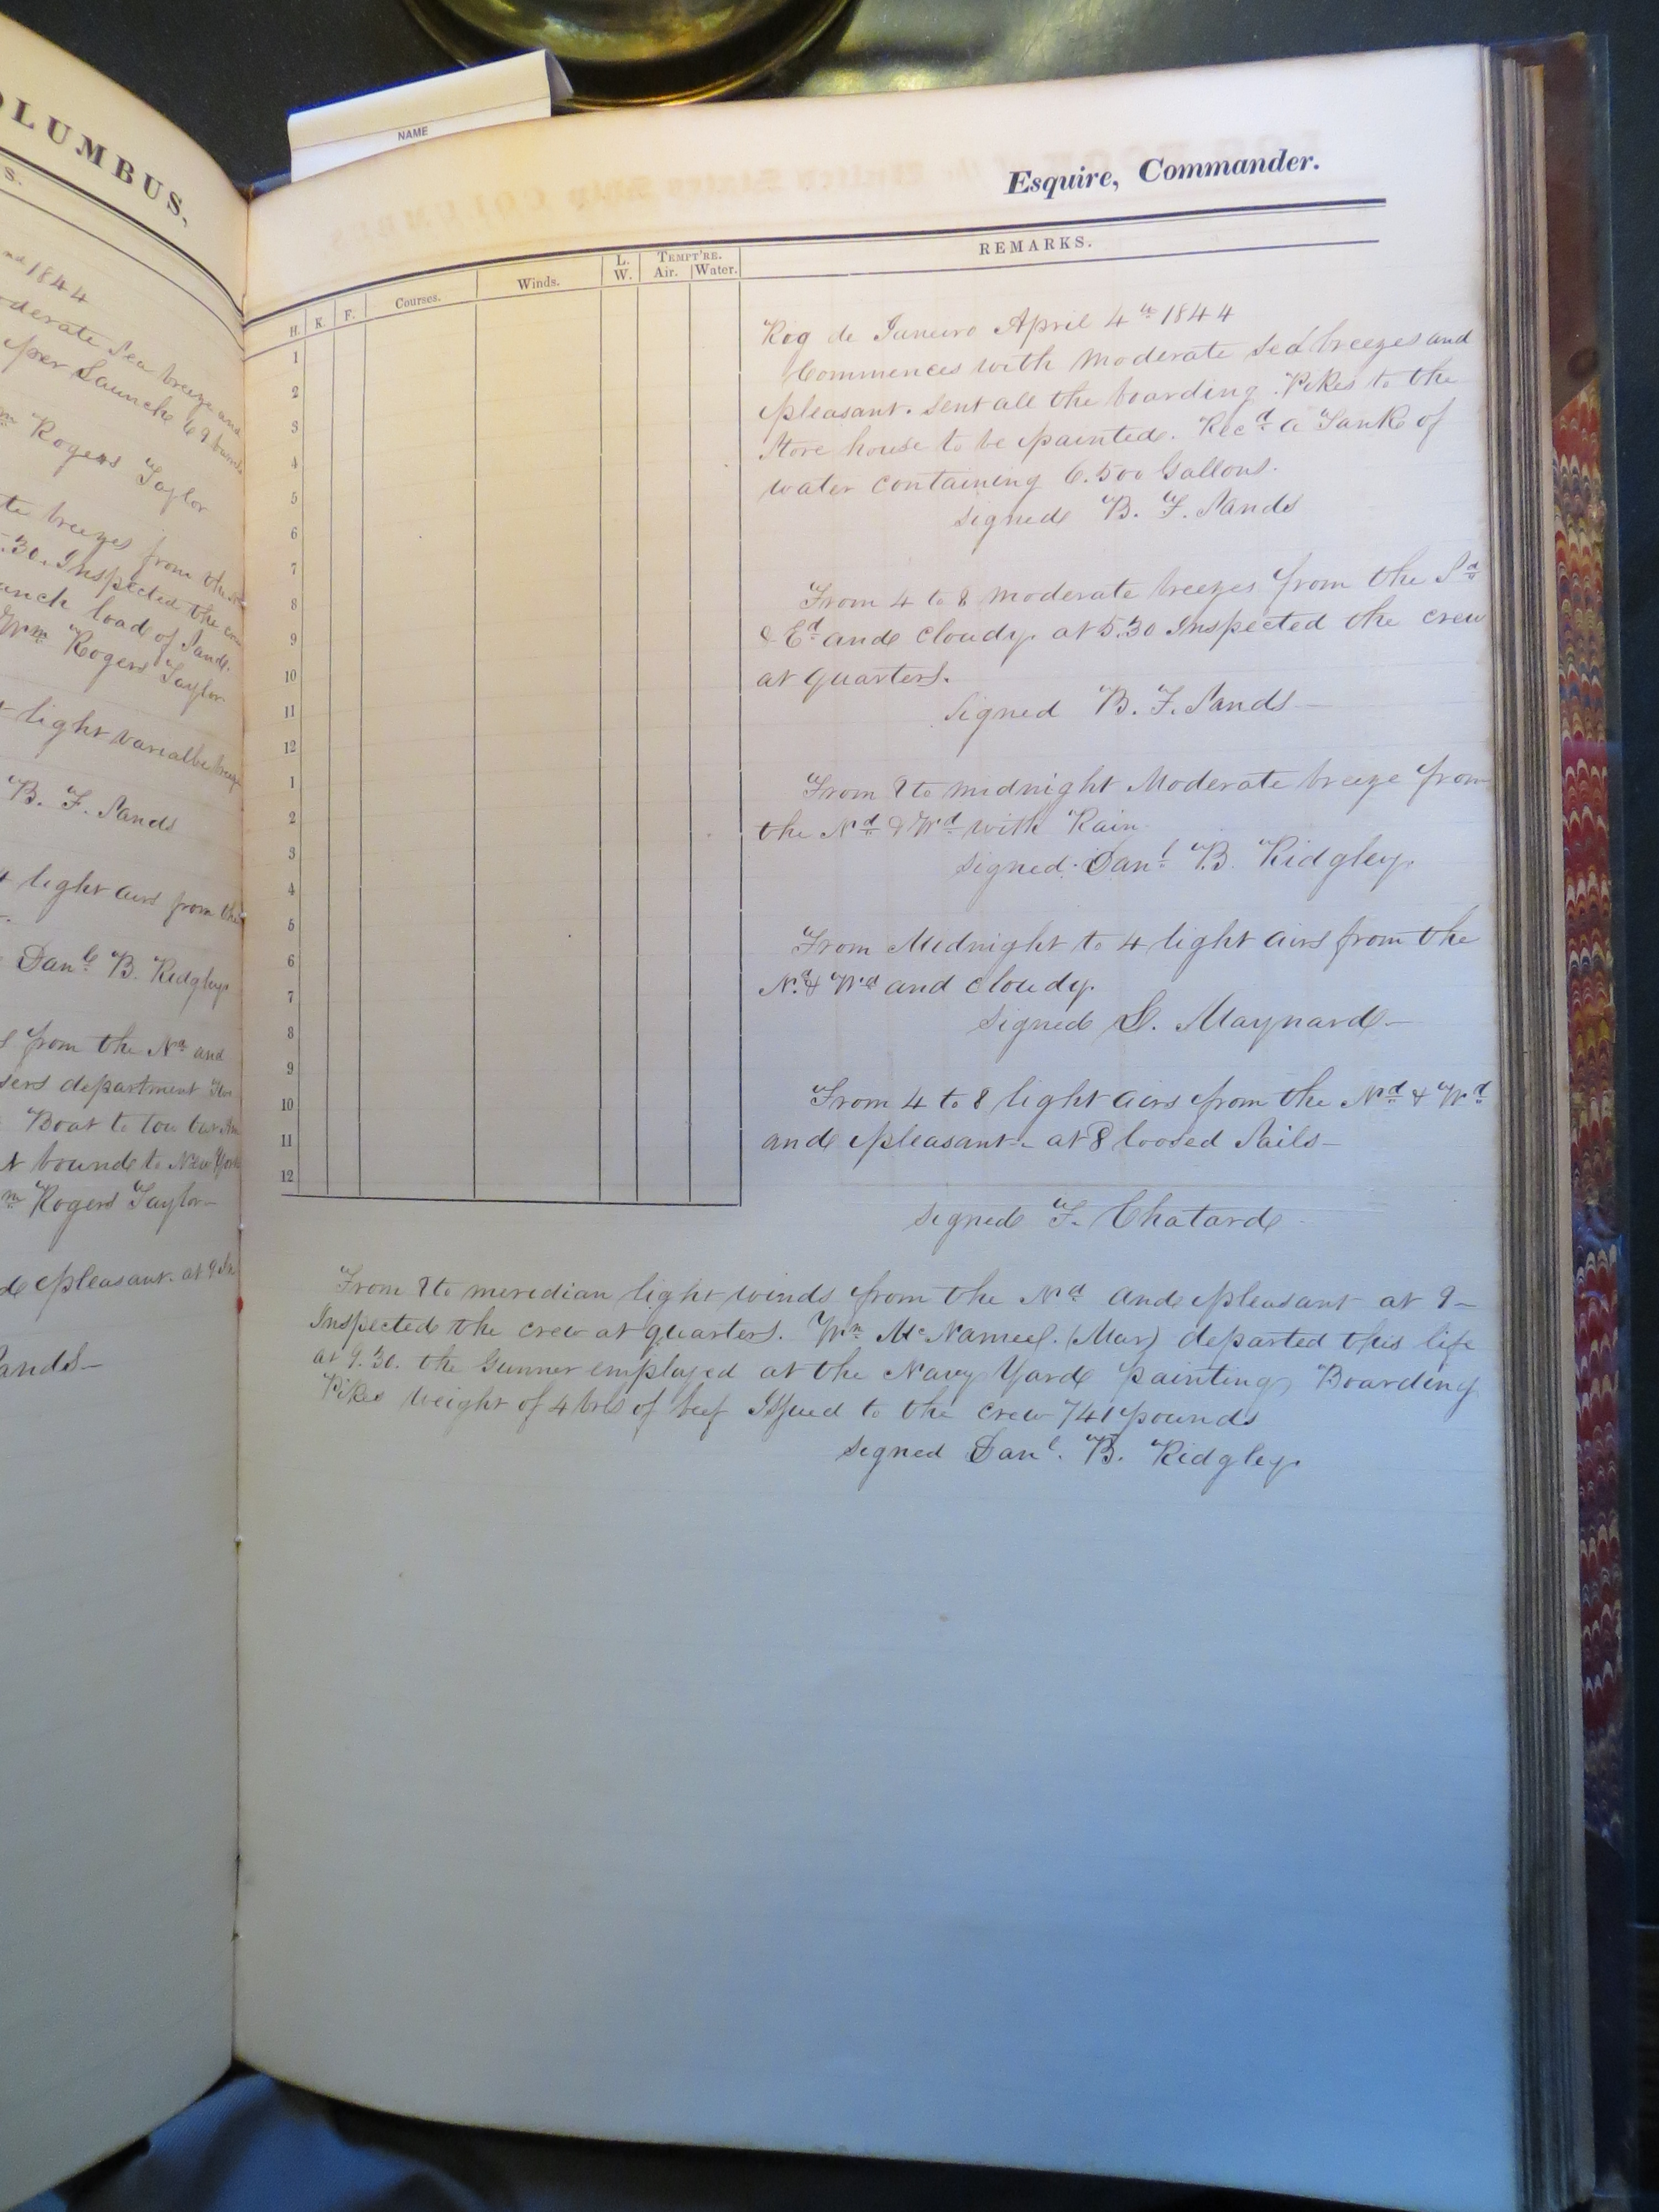 OLUMBUS,
S.
nd 1844
derate Sea breeze and
per Launch 69
m Rogers Taylor
te breezes from the
.30. Inspected the
unch load of Sand.
Wm Rogers Taylor
light varialbe breeze
B. F. Sands
4 light airs from the
Danl B. Ridgley
s from the Nd and
sers department
Boat to tow
t bound to New York
m Rogers Taylor
d pleasant. at 9
Sands
NAME
Esquire, Commander.
H. K. F. Courses. Winds. L. W. TEMPT'RE. Air. Water. REMARKS.
1
2
3
4
5
6
7
8
9
10
11
12
1
2
3
4
5
6
7
8
9
10
11
12
Rog de Janeiro April 4th 1844
Commences with moderate sea breezes and
pleasant. Sent all the boarding Pikes to the
Store house to be painted. Recd a Tank of
water containing 6.500 Gallons.
signed B. F. Sands
From 4 to 8 moderate breezes from the Sd
& Ed and cloudy. at 5.30 Inspected the crew
at quarters.
Signed B. F. Sands
From 8 to midnight Moderate breeze from
the Nd & Wd with Rain
Signed. Danl B. Ridgley.
From Midnight to 4 light airs from the
Nd & Wd and cloudy.
Signed L. Maynard
From 4 to 8 light airs from the Nd & Wd
and pleasant - at 8 loosed Sails
signed F. Chatard
From 8 to meridian light winds from the Nd and pleasant at 9
Inspected the crew at quarters. Wm McNameel. (Mar) departed this life
at 9.30. the Gunner employed at the Navy Yard painting Boarding
Pikes weight of 4 brls of beef Issued to the crew 741 pounds
signed Danl. B. Ridgley.